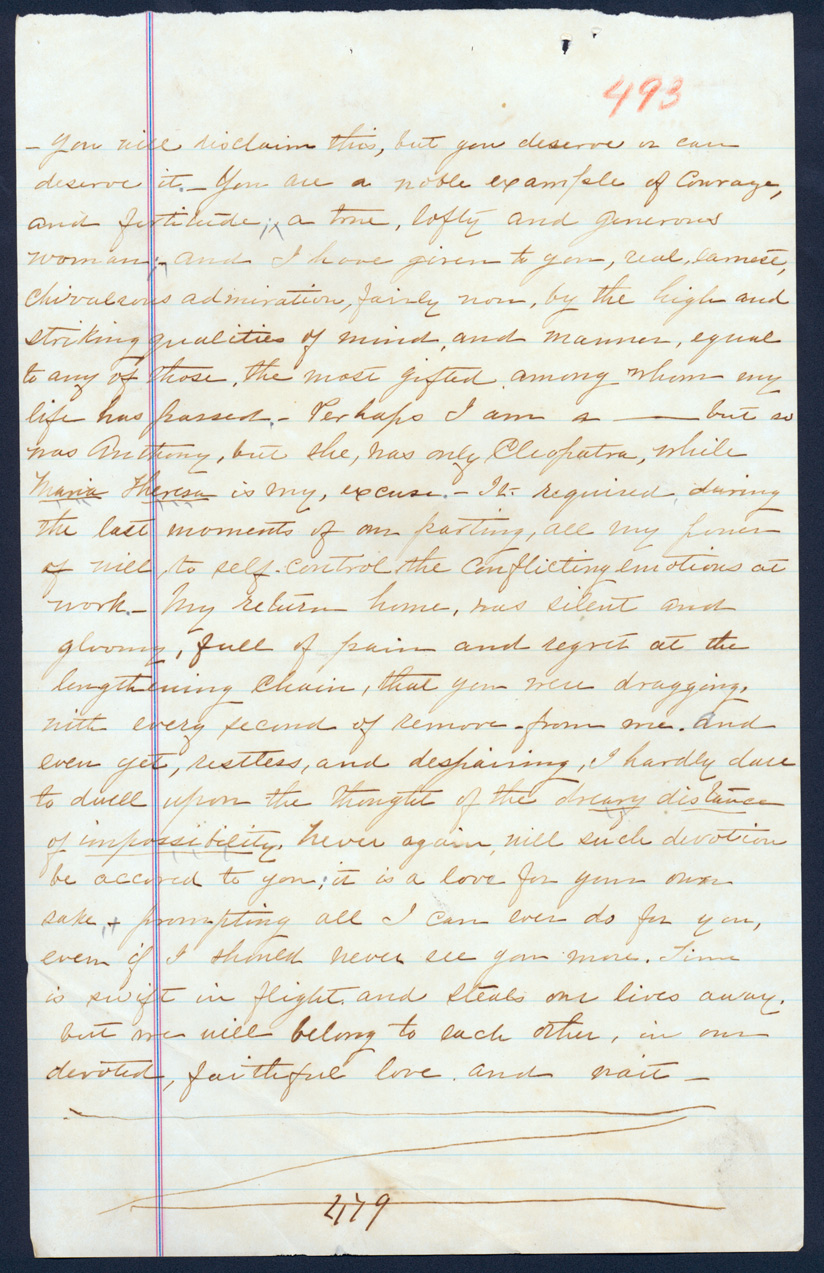 493
– You will disclaim this, but you deserve or can
deserve it. – You are a noble example of Courage,
and fortitude; a true, lofty and generous
woman; and I have given to you, real, earnest,
chivalrous admiration, fairly won, by the high and
striking qualities of mind, and manner, equal
to any of those, the most gifted among whom my
life has passed – Perhaps I am a —— but so
was Anthony, but she, was only Cleopatra, while
Maria Theresa is my, excuse. – It required, during
the last moments of our parting, all my power
of will, to self-control the conflicting emotions at
work – My return home, was silent and
gloomy, full of pain and regret at the
lengthening chain, that you were dragging,
with every second of remove from me. And
even yet, restless, and despairing, I hardly dare
to dwell upon the thought of the dreary distance
of impossibility. Never again, will such devotion
be accored to you; it is a love for your own
sake, + prompting all I can ever do for you,
even if I should never see you more. Time
is swift in flight and steals our lives away.
but we will belong to each other, in our
devoted, faithful love. and wait –
479